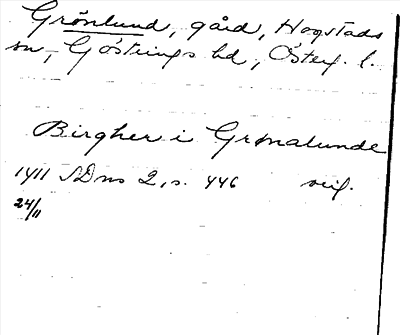 Grönlund, gård, Hogstads
sn, Göstrings hd, Östergl. l.
Birgher i Grønalunde
1411 SDns 2, s. 446 orig.
24/11